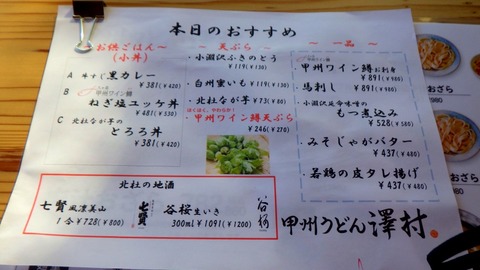 本日のおすすめ
お供ごはん〜
(小丼)
A 牛すじ黒カレー
¥381(¥420)
B
甲州ワイン鱒
ねぎ塩ユッケ丼
¥481(¥530)
C 北杜なが芋の
とろろ丼
¥381(¥420)
〜 天ぷら 〜
・小淵沢ふきのとう
¥119(¥130)
・白州蜜いも ¥119(¥130)
・北杜なが芋 ¥73(¥80)
・甲州ワイン鱒天ぷら
¥246(¥270)
〜一品〜
甲州ワイン鱒お刺身
¥891(¥980)
・馬刺し ¥891(¥980)
もつ煮込み
¥528(¥580)
・みそじゃがバター
¥437(¥480)
・若鶏の皮タレ揚げ
¥437(¥480)
北杜の地酒
七賢 風凛美山
1合¥728(¥800)
七賢
谷桜 生いき
300ml ¥1091(¥1200)
谷桜
甲州うどん 澤村
おざら
980